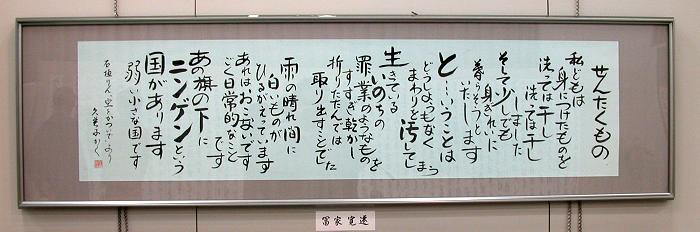 せんたくもの
私どもは
身につけたものを
洗っては干し
洗っては干し
しました
そして少しでも
身ぎれいに
暮らそうと
いたします
と…いうことは
どうしようもなく
まわりを汚してしまう
生きている
いのちの
罪業のようなものを
すすぎ乾かし
折りたたんでは
取り出すことでした
雨の晴れ間に
白いものが
ひるがえっています
あれはおこないです
ごく日常的なことです
あの旗の下に
ニンゲンという
国があります
弱い小さな国です
石垣りん 空をかついで より
冨家